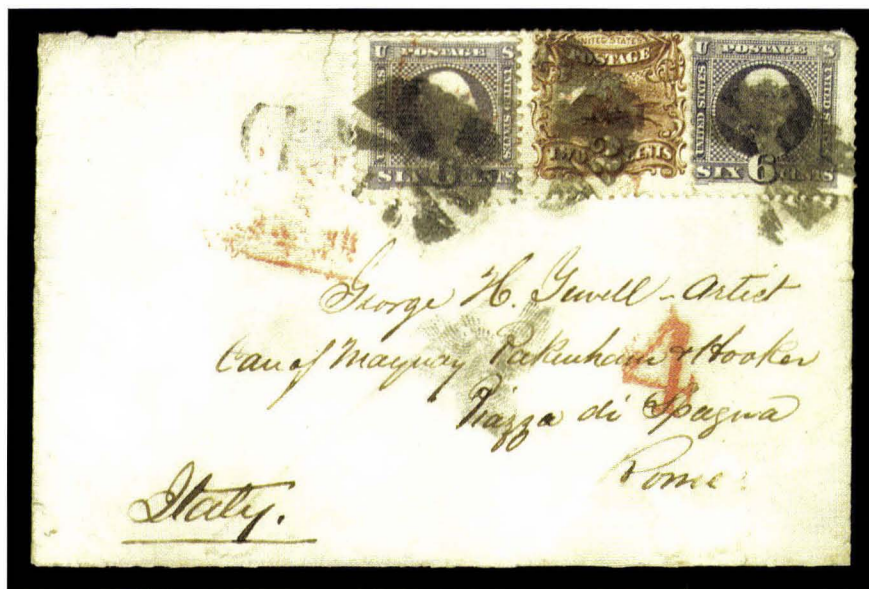 U POSTAGE S
UNITED STATES
UNITED STATES
SIX 6 CENTS
UNITED STATES
POSTAGE
TWO 2 CENTS
U POSTAGE S
UNITED STATES
UNITED STATES
SIX 6 CENTS
George H. Yewell - Artist
Care of Maquay Pakenham & Hooker
Piazza di Spagna
4
Rome
Italy.